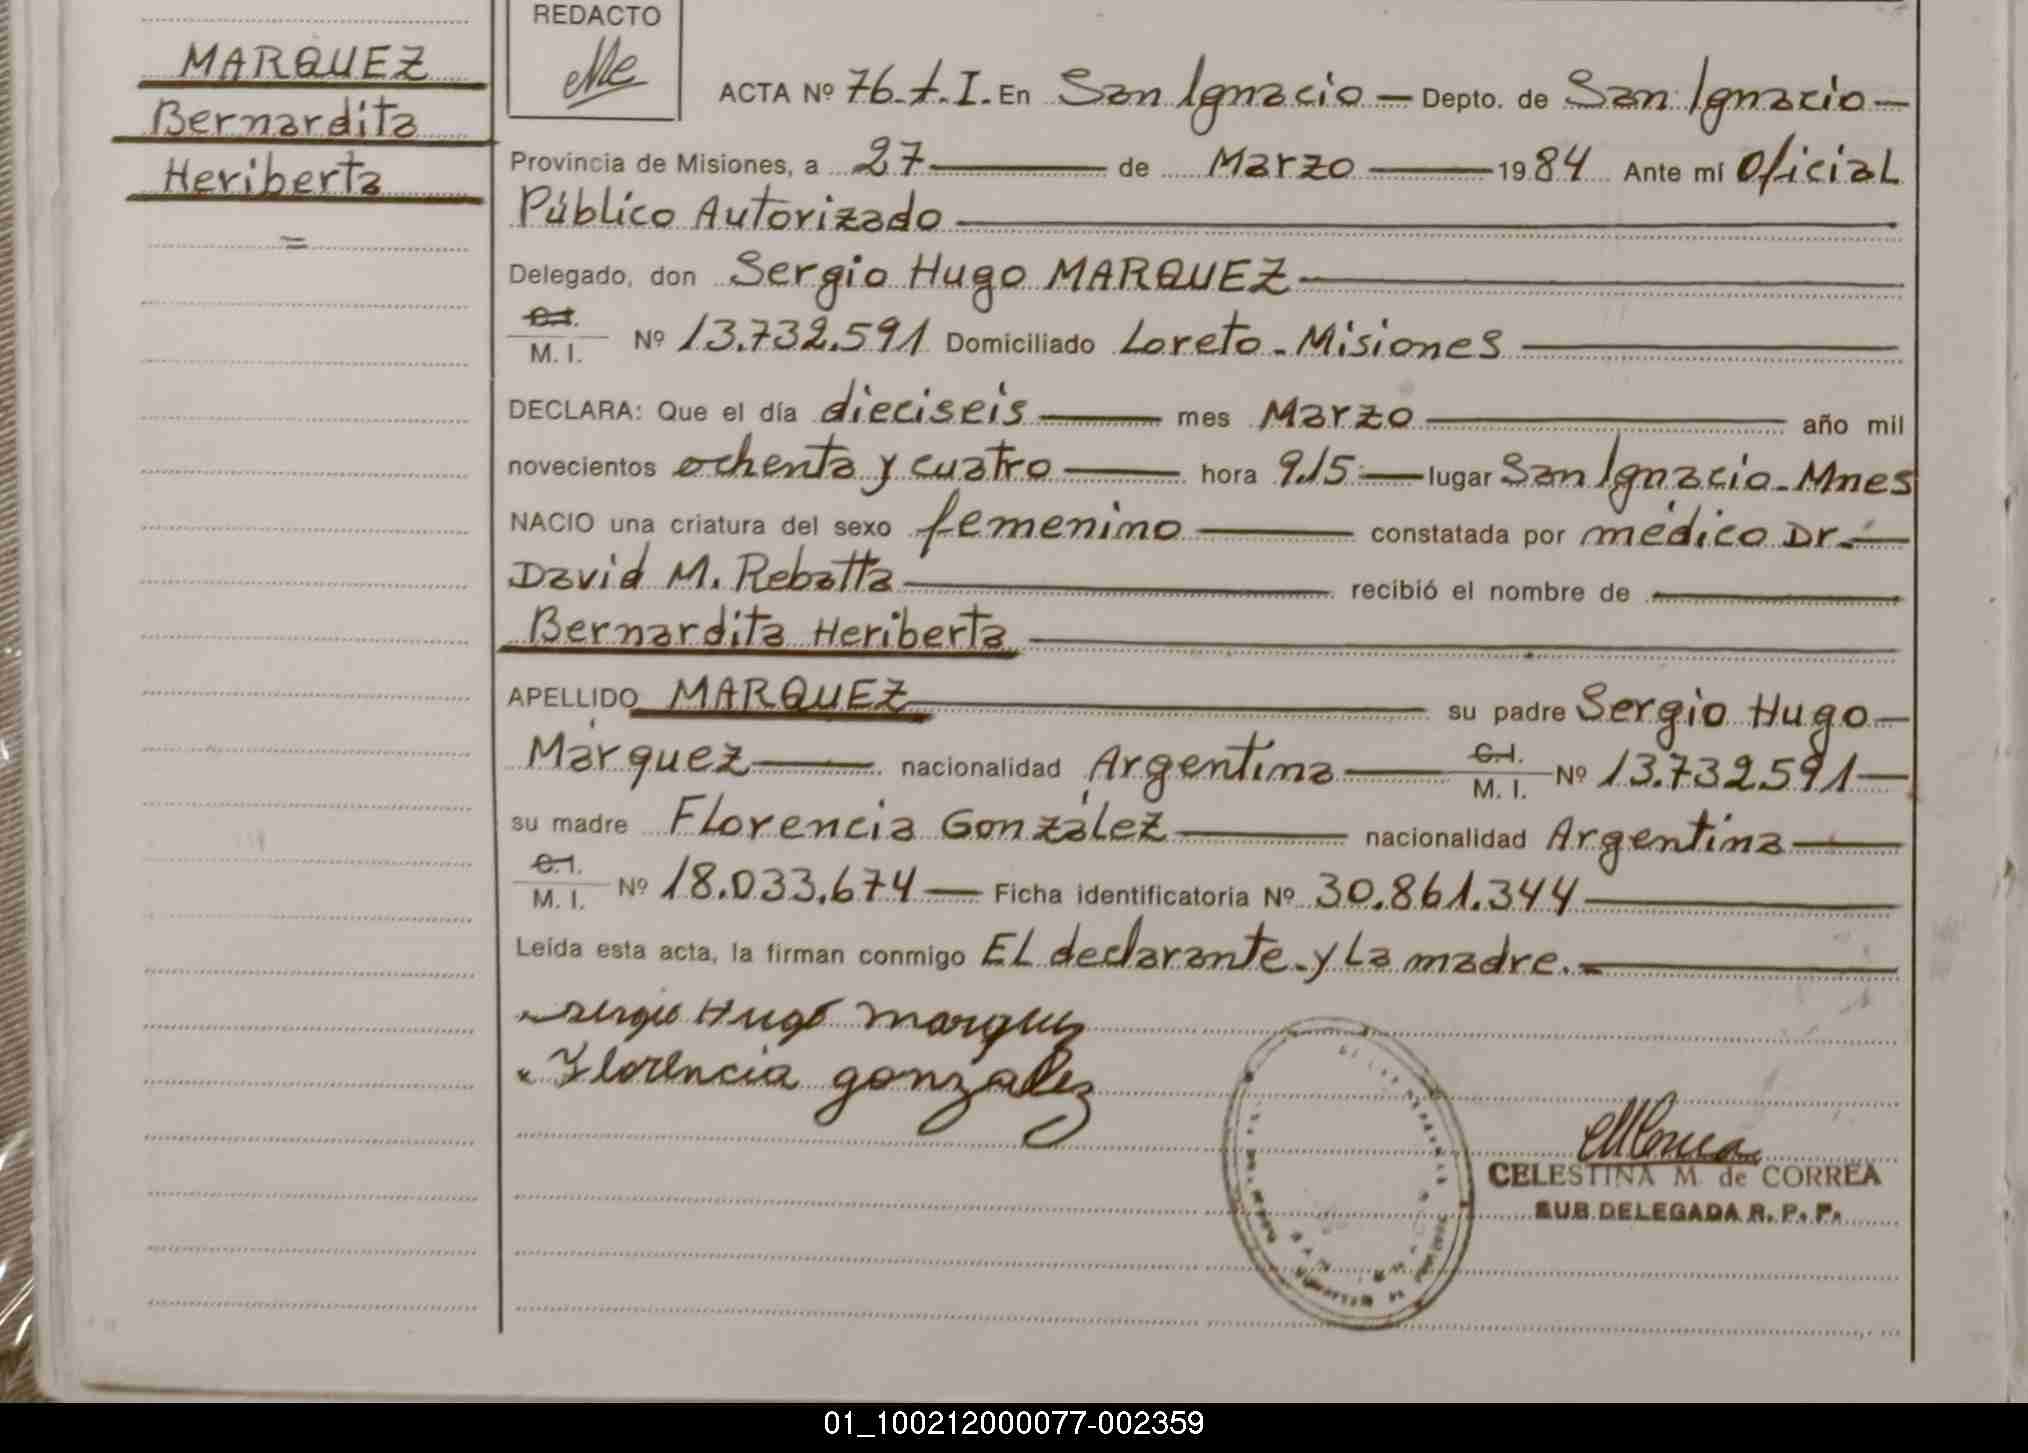 MARQUEZ
Bernardita
Heriberta
=
REDACTO
ACTA Nº 76.t.I. En San Ignacio — Depto. de San Ignacio —
Provincia de Misiones, a 27 — de Marzo — 1984 Ante mí Oficial
Público Autorizado —
Delegado, don Sergio Hugo MARQUEZ —
C.I. / M. I. Nº 13.732.591 Domiciliado Loreto - Misiones —
DECLARA: Que el día dieciseis — mes Marzo — año mil
novecientos ochenta y cuatro — hora 9.15 — lugar San Ignacio - Mnes
NACIO una criatura del sexo femenino — constatada por médico Dr. —
David M. Rebatta — recibió el nombre de —
Bernardita Heriberta —
APELLIDO MARQUEZ — su padre Sergio Hugo —
Márquez — nacionalidad Argentina — C.I. / M. I. Nº 13.732591 —
su madre Florencia González — nacionalidad Argentina —
C.I. / M. I. Nº 18.033.674 — Ficha identificatoria Nº 30.861.344 —
Leída esta acta, la firman conmigo El declarante y La madre. —
Sergio Hugo Marquez
Florencia gonzalez
CELESTINA M. de CORREA
SUB DELEGADA R. P. P.
01_100212000077-002359